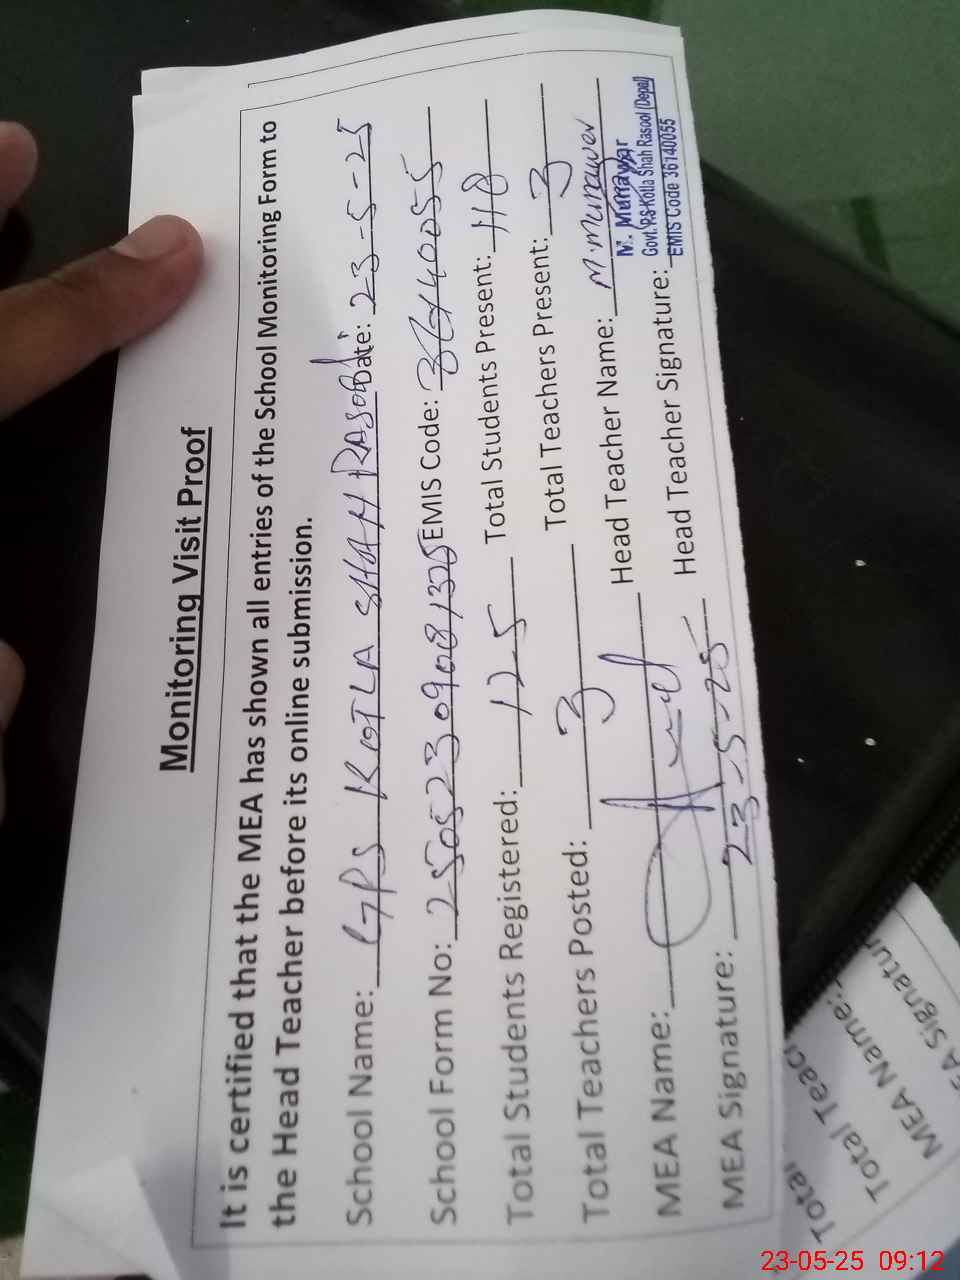 Monitoring Visit Proof
It is certified that the MEA has shown all entries of the School Monitoring Form to
the Head Teacher before its online submission.
School Name: GPS KOTLA SHAH RASOOL Date: 23-5-25
School Form No: 250523090081325 EMIS Code: 36140055
Total Students Registered: 125 Total Students Present: 118
Total Teachers Posted: 3 Total Teachers Present: 3
MEA Name: Head Teacher Name: M. Munawer
M. Munawar
Govt. P.S Kotla Shah Rasool (Depal)
MEA Signature: 23-5-25 Head Teacher Signature: EMIS Code 36140055
Total
Total Teac
MEA Name:
EA Signatur
23-05-25 09:12